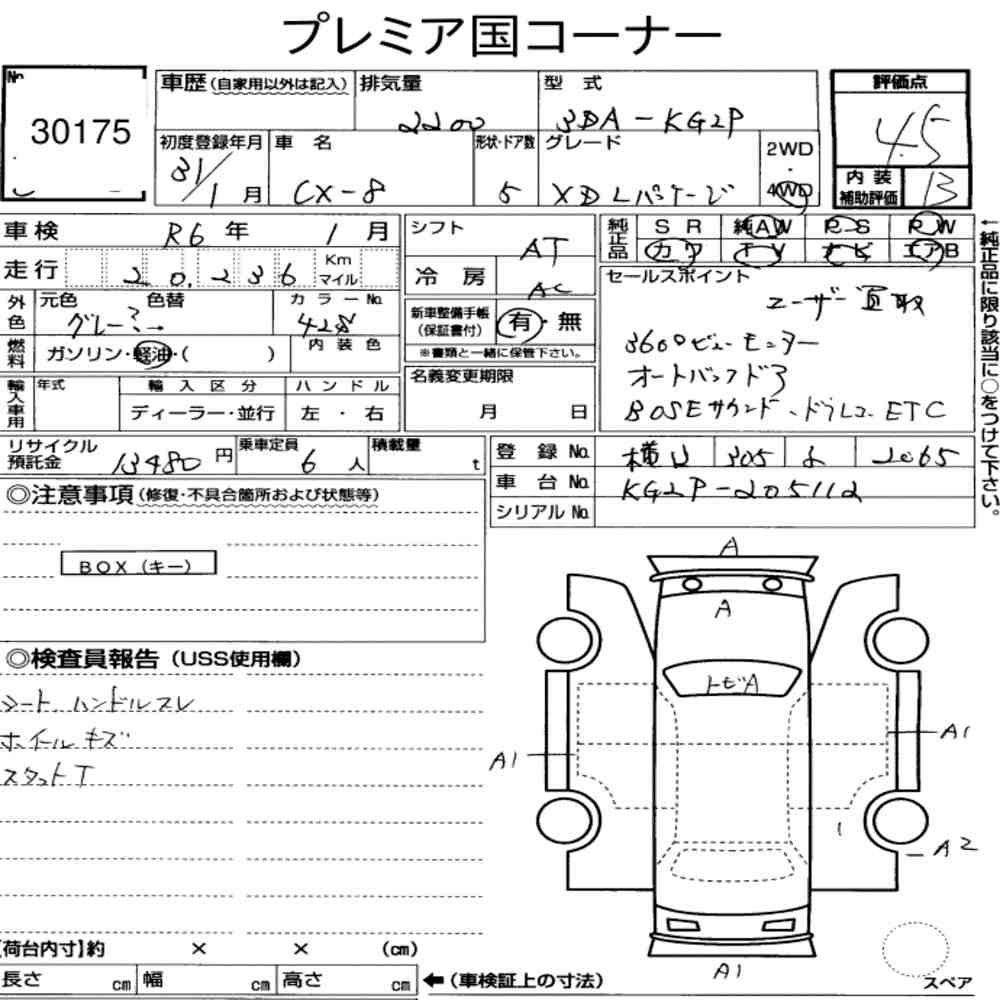 プレミア国コーナー
No
30175
車歴(自家用以外は記入)
排気量
2200
型 式
3DA-KG2P
評価点
4.5
初度登録年月
31/1 月
車 名
CX-8
形状・ドア数
5
グレード
XDLパケージ
2WD
・
4WD
内 装
補助評価
B
車検 R6年 1月
走行 20,236 Km マイル
シフト AT
冷 房 AC
純正品
SR 純AW PS PW
カワ TV ナビ エアB
外色
元色 グレー
色替
?→
カラーNo.
428
燃料
ガソリン・軽油・( )
内装色
新車整備手帳
(保証書付)
有・無
※書類と一緒に保管下さい。
セールスポイント
ユーザー買取
360°ビューモニター
オートバックドア
BOSEサウンド、ドラレコ ETC
輸入車用
年式
輸入区分
ディーラー・並行
ハンドル
左・右
名義変更期限
月 日
←純正品に限り該当に○をつけて下さい。
リサイクル
預託金
13480円
乗車定員
6人
積載量
t
登録No. 横浜 305 2065
車台No. KG2P-205112
シリアルNo.
◎注意事項(修復・不具合箇所および状態等)
BOX(キー)
◎検査員報告(USS使用欄)
シート、ハンドルスレ
ホイールキズ
スタットT
A
A
トビA
A1
A1
A2
A1
スペア
【荷台内寸】約 × × (cm)
長さ cm 幅 cm 高さ cm ←(車検証上の寸法)